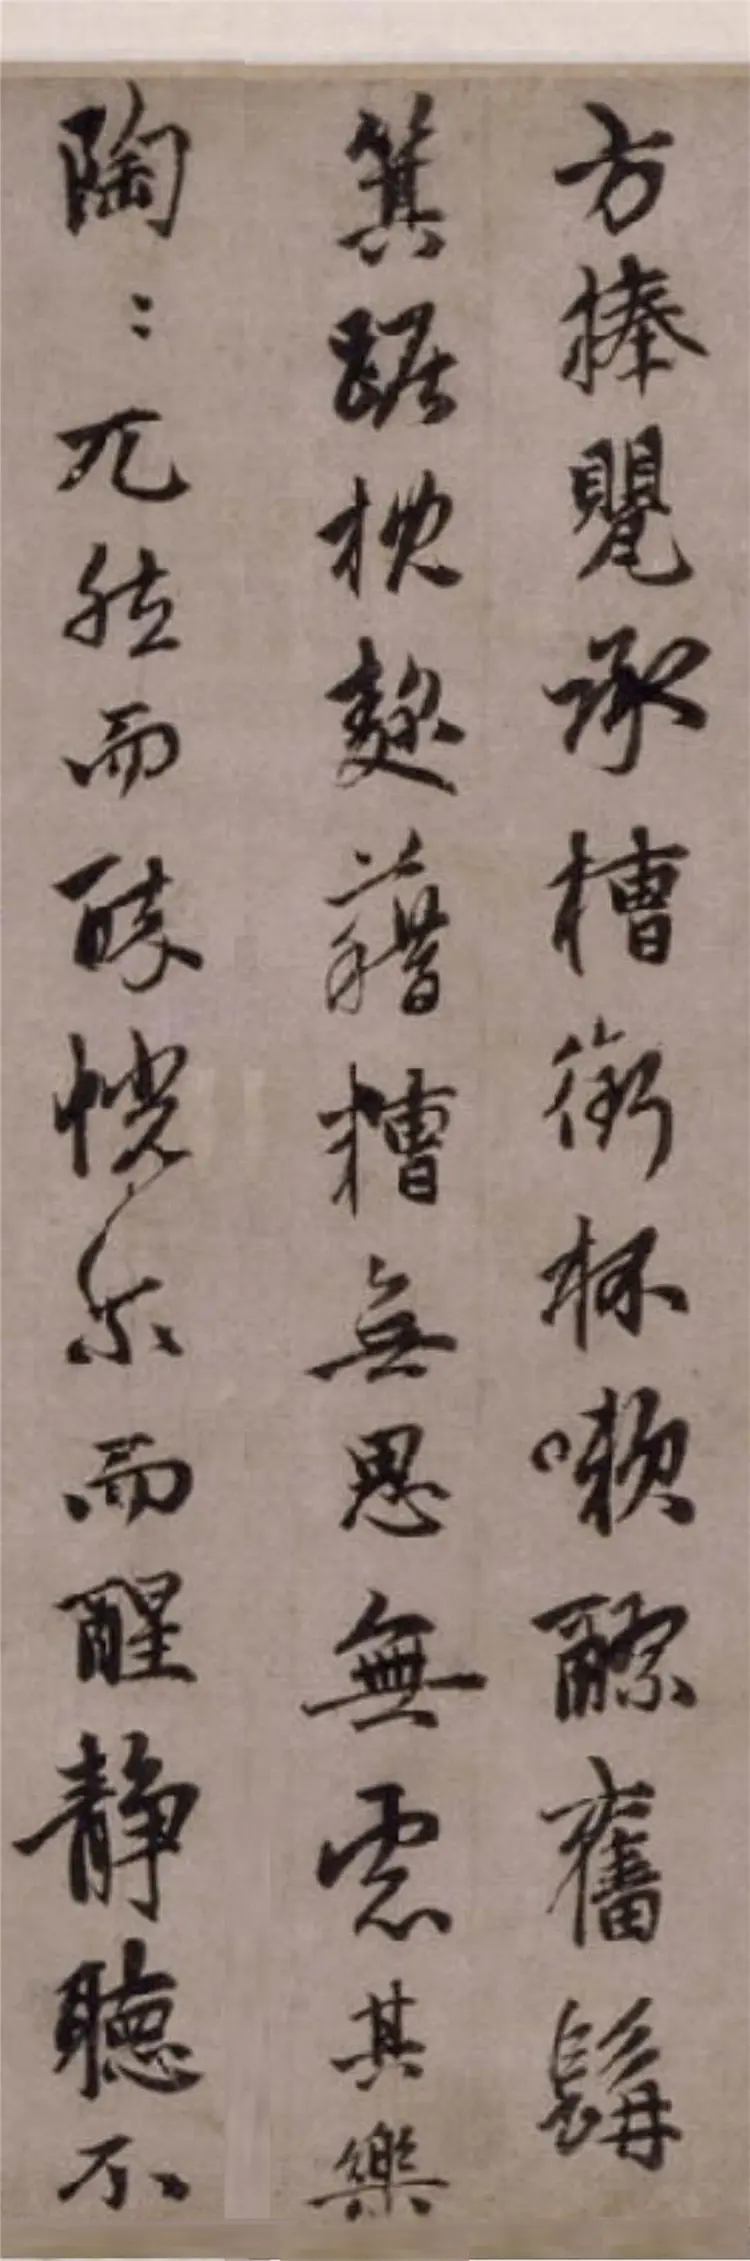 方捧甖承槽銜杯嗽醪奮髯
箕踞枕麴藉糟無思無慮其樂
陶〻兀然而醉恍尔而醒静聽不